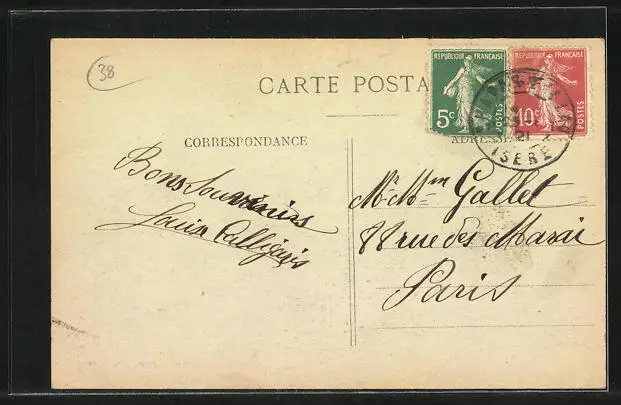 38
CARTE POSTA
REPUBLIQUE FRANÇAISE
5c
POSTES
REPUBLIQUE FRANÇAISE
10c
POSTES
21
ISERE
CORRESPONDANCE
ADRESSE
Bons Souvenirs
Louis
Mr. Mme Gallet
rue des Marai
Paris